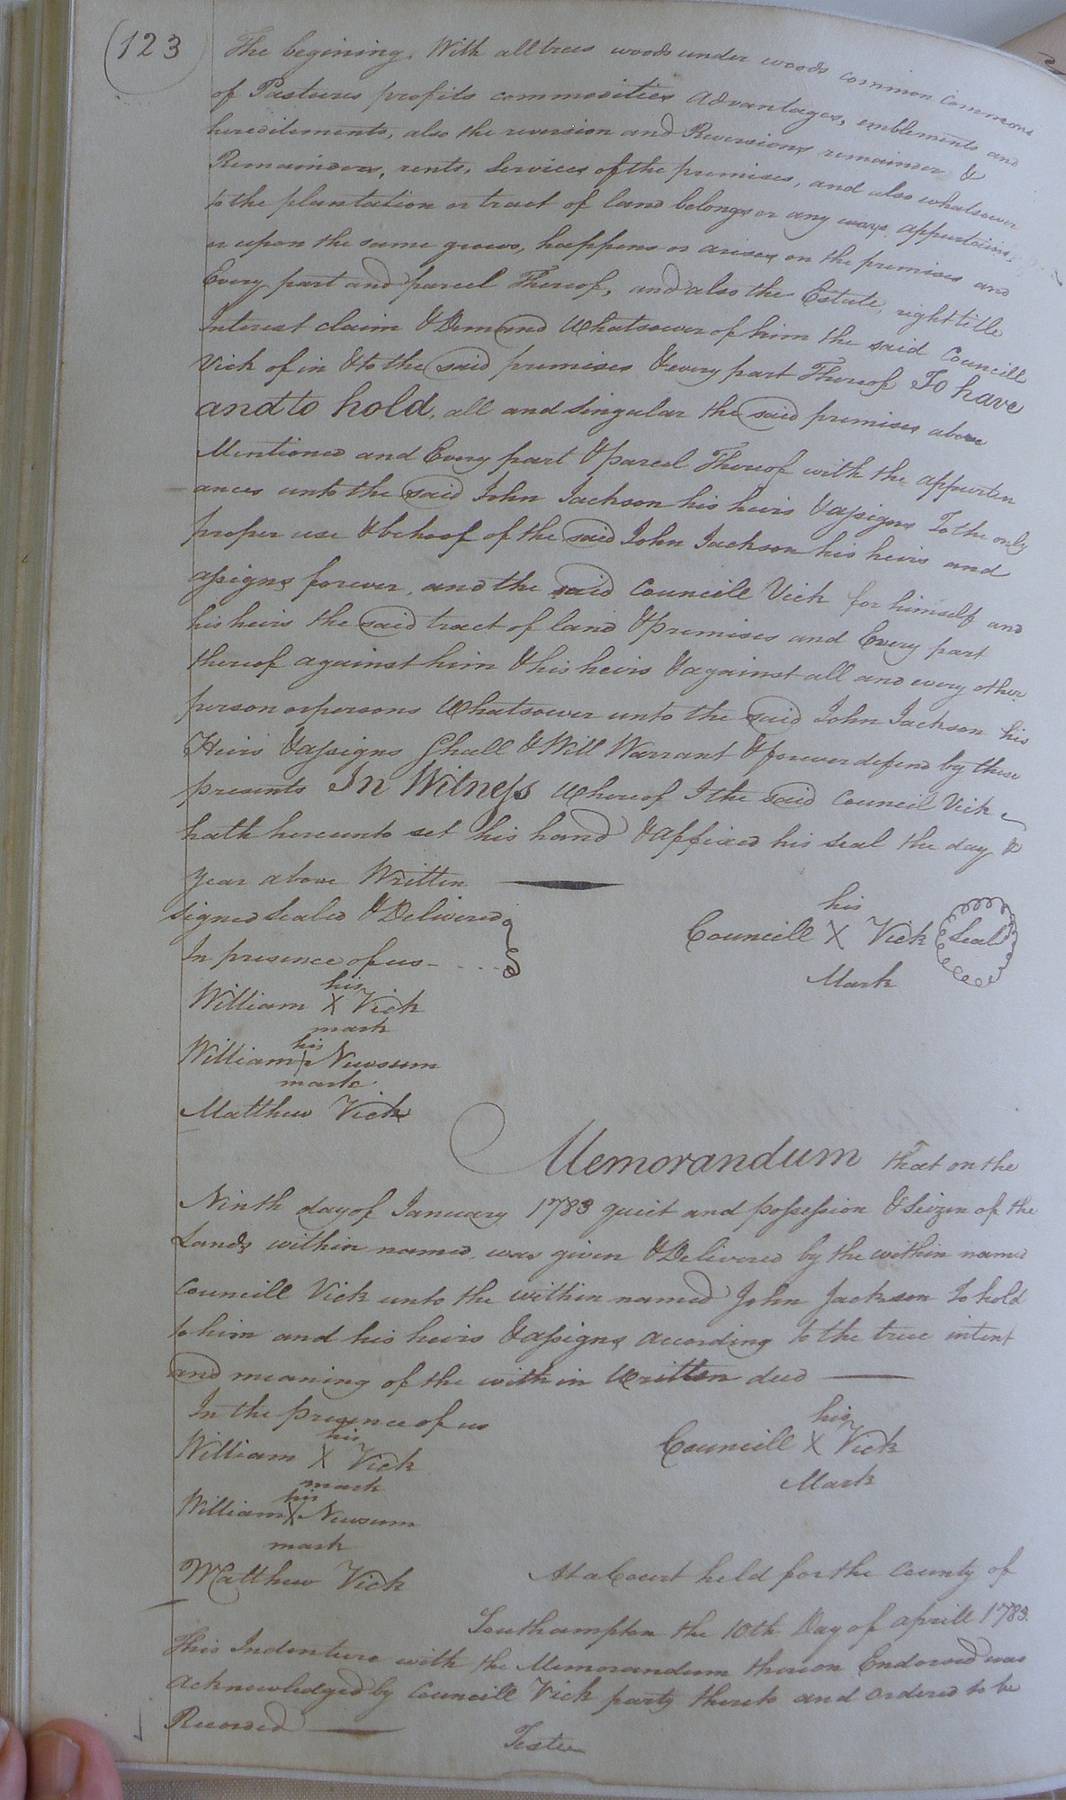 123
The begining. With all trees woods under woods common Commons
of Pastures profits commodities advantages, emblements and
hereditements, also the reversion and Reversions remainder &
Remainders, rents, Services of the premises, and also whatsoever
to the plantation or tract of land belongs or any ways appertains,
or upon the same grows, happens or arises on the premises and
Every part and parcel Thereof, and also the Estate, right title
Interest claim & Demand Whatsoever of him the said Councill
Vick of in & to the said premises & every part Thereof To have
and to hold, all and Singular the said premises above
Mentioned and Every part & parcel Thereof with the appurten
ances unto the said John Jackson his heirs & assigns To the only
proper use & behoof of the said John Jackson his heirs and
assigns forever, and the said Councill Vick for himself and
his heirs the said tract of land & Premises and Every part
thereof against him & his heirs & against all and every other
person or persons Whatsoever unto the said John Jackson his
Heirs & assigns Shall & Will Warrant & forever defend by these
presents In Witness Whereof I the said Council Vick
hath hereunto set his hand & affixed his seal the day &
year above Written
Signed Sealed & Delivered
In presence of us
his
Councill X Vick Seal
Mark
his
William X Vick
mark
his
William + Newsum
mark
Matthew Vick
Memorandum that on the
Ninth day of January 1783 quiet and possession & Seizen of the
Lands within named, was given & Delivered by the within named
Councill Vick unto the within named John Jackson To hold
to him and his heirs & assigns acording to the true intent
and meaning of the within Written deed
In the presence of us
his
Councill X Vick
Mark
his
William X Vick
mark
his
William X Newsum
mark
Matthew Vick
At a Court held for the County of
Southampton the 10th Day of aprill 1783.
This Indenture with the Memorandum thereon Endorsed was
Acknowledged by Councill Vick party thereto and ordered to be
Recorded
Teste